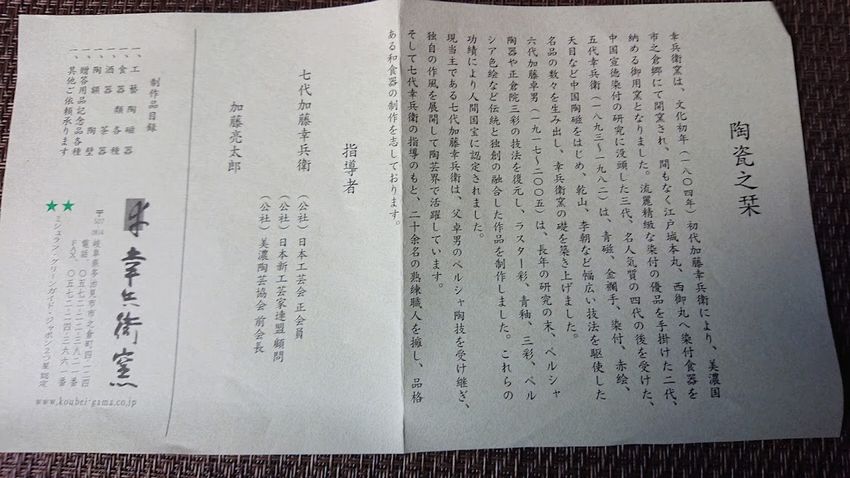 陶瓷之栞
幸兵衛窯は、文化初年(一八〇四年)初代加藤幸兵衛により、美濃国
市之倉郷にて開窯され、間もなく江戸城本丸、西御丸へ染付食器を
納める御用窯となりました。流麗精緻な染付の優品を手掛けた二代、
中国宣徳染付の研究に没頭した三代、名人気質の四代の後を受けた、
五代幸兵衛(一八九三~一九八二)は、青磁、金襴手、染付、赤絵、
天目など中国陶磁をはじめ、乾山、李朝など幅広い技法を駆使した
名品の数々を生み出し、幸兵衛窯の礎を築き上げました。
六代加藤卓男(一九一七~二〇〇五)は、長年の研究の末、ペルシャ
陶器や正倉院三彩の技法を復元し、ラスター彩、青釉、三彩、ペル
シア色絵など伝統と独創の融合した作品を制作しました。これらの
功績により人間国宝に認定されました。
現当主である七代加藤幸兵衛は、父卓男のペルシャ陶技を受け継ぎ、
独自の作風を展開して陶芸界で活躍しています。
そして七代幸兵衛の指導のもと、二十余名の熟練職人を擁し、品格
ある和食器の制作を志しております。
指導者
七代加藤幸兵衛
(公社)日本工芸会 正会員
(公社)日本新工芸家連盟 顧問
(公社)美濃陶芸協会 前会長
加藤亮太郎
制作品目録
一、工藝陶磁器
一、食器類各種
一、酒器 茶器
一、陶額 陶壁
一、贈答用品記念品各種
一、其他ご依頼承ります
幸兵衛窯
〒507-0814 岐阜県多治見市市之倉町四-一二四
電話 〇五七二-二二-三八二一番
FAX 〇五七二-二四-三六六一番
★★ ミシュラン・グリーンガイド・ジャポン2つ星認定
www.koubei-gama.co.jp